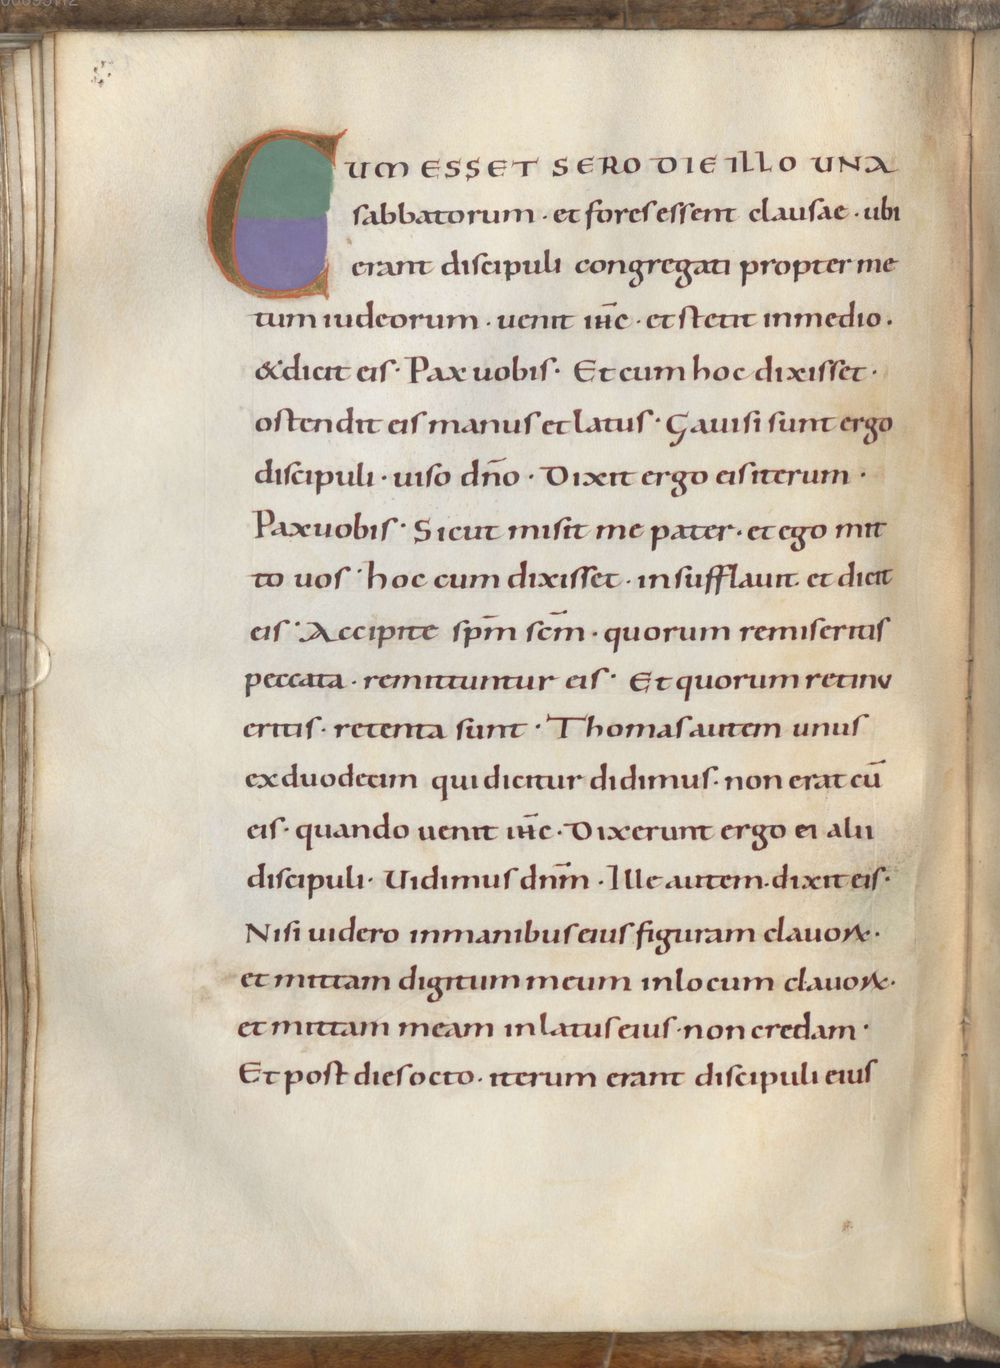 CUM ESSET SERO DIE ILLO UNA
sabbatorum · et fores essent clausae · ubi
erant discipuli congregati propter me
tum iudeorum · uenit ihc̄ · et stetit in medio .
& dicit eis · Pax uobis · Et cum hoc dixisset ·
ostendit eis manus et latus · Gauisi sunt ergo
discipuli · uiso dn̄o · Dixit ergo eis iterum ·
Pax uobis · Sicut misit me pater · et ego mit
to uos · hoc cum dixisset · insufflauit et dicit
eis · Accipite sp̄m sc̄m · quorum remiseritis
peccata · remittuntur eis · Et quorum retinu
eritis · retenta sunt · Thomas autem unus
ex duodecim qui dicitur didimus · non erat cū
eis · quando uenit ihc̄ · Dixerunt ergo ei alii
discipuli · Uidimus dn̄m · Ille autem · dixit eis ·
Nisi uidero in manibus eius figuram clauoꝝ ·
et mittam digitum meum in locum clauoꝝ ·
et mittam meam in latus eius · non credam ·
Et post dies octo · iterum erant discipuli eius